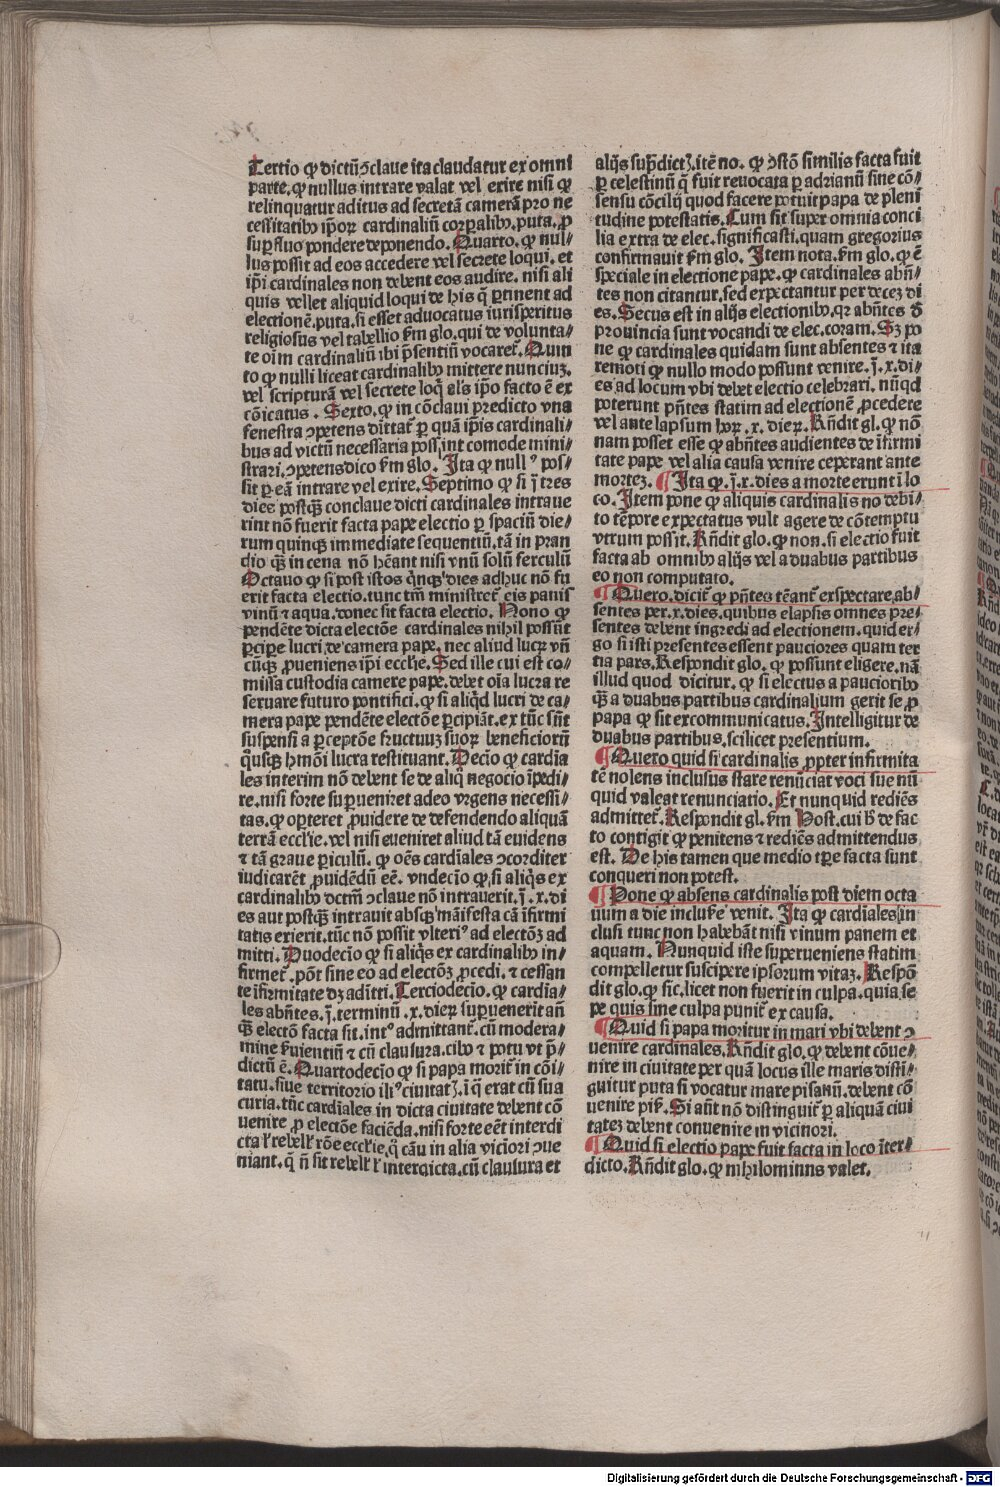 Tertio ꝙ dictū ↄclaue ita claudatur ex omni
parte, ꝙ nullus intrare valat vel exire nisi ꝙ
relinquatur aditus ad secretā camerā pro ne
cessitatibꝰ ip̄oꝝ cardinaliū corꝑalibꝰ. puta. ꝓ
suꝑfluo pondere deponendo. Quarto. ꝙ nul⸗
lus possit ad eos accedere vel secrete loqui. et
ip̄i cardinales non debent eos audire. nisi ali
quis vellet aliquid loqui de his q̄ ꝑtinent ad
electionē. puta. si esset aduocatus iurisperitus
religiosus vel tabellio ẜm glo. qui de volunta⸗
te oīm cardinaliū ibi p̄sentiū vocaret̄. Quin
to ꝙ nulli liceat cardinalibꝰ mittere nunciuꝫ.
vel scripturā vel secrete loq̄ als̄ ip̄o facto ē ex
cōicatus. Sexto. ꝙ in cōclaui predicto vna
fenestra ↄpetens dittat̄ ꝑ quā ip̄is cardinali⸗
bus ad victū necessaria possint comode mini⸗
strari. ↄpetens dico ẜm glo. Ita ꝙ nullꝰ pos⸗
sit ꝑ eā intrare vel exire. Septimo ꝙ si ī tres
dies postqꝫ conclaue dicti cardinales intraue
rint nō fuerit facta pape electio ꝑ spaciū die⸗
rum quinqꝫ immediate sequentiū. tā in pran
dio qꝫ in cena nō hēant nisi vnū solū ferculū
Octauo ꝙ si post istos q̄nqꝫ dies adhuc nō fu
erit facta electio. tunc tm̄ ministret̄ eis panis
vinū ⁊ aqua. donec fit facta electio. Nono ꝙ
pendēte dicta electōe cardinales nihil possūt
ꝑcipe lucri de camera pape. nec aliud lucꝝ vn̄
cūqꝫ ꝓueniens ip̄i eccl̄ie. Sed ille cui est co⸗
missa custodia camere pape. debet oīa lucra re
seruare futuro pontifici. ꝙ si aliq̄d lucri de ca⸗
mera pape pendēte electōe ꝑcipiāt. ex tūc sūt
suspensi a ꝑceptōe fructuuꝫ suoꝝ beneficiorū
q̄usqꝫ hmōi lucra restituant. Decīo ꝙ cardīa
les interim nō debent se de aliq̄ negocio īpedi⸗
re. nisi forte suꝑueniret adeo vrgens necessi⸗
tas. ꝙ oꝑteret ꝓuidere de defendendo aliquā
terrā eccl̄ie. vel nisi eueniret aliud tā euidens
⁊ tā graue ꝑiculū. ꝙ oēs cardīales ↄcorditer
iudicarēt ꝓuidēdū eē. vndecīo ꝙ si aliq̄s ex
cardinalibꝰ dctm̄ ↄclaue nō intrauerit. ī. x. di
es aut postqꝫ intrauit absqꝫ māifesta cā īfirmi
tatis exierit. tūc nō possit vlteriꝰ ad electōꝫ ad
mitti. Duodecīo ꝙ si aliq̄s ex cardinalibꝰ in⸗
firmet̄. pōt sine eo ad electōꝫ ꝓcedi. ⁊ cessan
te īfirmitate dꝫ adītti. Terciodecīo. ꝙ cardīa⸗
les abn̄tes. ī. terminū. x. dieꝝ suꝑuenerit an̄
qꝫ electō facta sit. intꝰ admittant̄. cū modera⸗
mine ẜuientiū ⁊ cū clausura. cibo ⁊ potu vt p̄⸗
dictū ē. Quartodecīo ꝙ si papa morit̄ in cōi⸗
tatu. siue territorio iliꝰ ciuitatꝫ. ī q̄ erat cū sua
curia. tūc cardīales in dicta ciuitate debent cō
uenire ꝓ electōe faciēda. nisi forte eēt interdi
cta l̄ rebell̄ rōe eccl̄ie, q̄ cāu in alia vic̄iori ↄue
niant. q̄ n̄ sit rebell̄ l̄ interdicta. cū clausura et
alijs sup̄dictꝫ. itē no. ꝙ ↄstō similis facta fuit
ꝑ celestinū q̄ fuit reuocata ꝑ adrianū sine cō⸗
sensu cōcilij quod facere potuit papa de pleni
tudine potestatis. Cum sit super omnia conci
lia extra de elec. significasti. quam gregorius
confirmauit ẜm glo. Item nota. ẜm glo. ꝙ ē
speciale in electione pape. ꝙ cardinales abn̄⸗
tes non citantur. sed expectantur per deceꝫ di
es. Secus est in alijs electionibꝰ. qꝛ abn̄tes d̄
prouincia sunt vocandi de elec. coram. Sꝫ po
ne ꝙ cardinales quidam sunt absentes ⁊ ita
remoti ꝙ nullo modo possunt venire. ī. x. di⸗
es ad locum vbi debet electio celebrari. nūqd
poterunt pn̄tes statim ad electionē ꝓcedere
vel ante lapsum hoꝝ. x. dieꝝ. Rn̄dit gl. ꝙ nō
nam posset esse ꝙ abn̄tes audientes de īfirmi
tate pape vel alia causa venire ceperant ante
morteꝫ. ¶ Ita ꝙ. ī. x. dies a morte erunt ī lo
co. Item pone ꝙ aliquis cardinalis no debi⸗
to tēpore expectatus vult agere de cōtemptu
vtrum possit. Rn̄dit glo. ꝙ non. si electio fuit
facta ab omnibꝰ alijs vel a duabus partibus
eo non computato.
¶ Quero. dicit̄ ꝙ pn̄tes tēant̄ exspectare, ab⸗
sentes per. x. dies. quibus elapsis omnes pre⸗
sentes debent ingredi ad electionem. quid er⸗
go si isti presentes essent pauciores quam ter
tia pars. Respondit glo. ꝙ possunt eligere. nā
illud quod dicitur. ꝙ si electus a paucioribꝰ
qꝫ a duabus partibus cardinalium gerit se ꝓ
papa ꝙ sit excommunicatus. Intelligitur de
duabus partibus. scilicet presentium.
¶ Quero quid si cardinalis ꝓpter infirmita
tē nolens inclusus stare renūciat voci sue nū
quid valeat renunciatio. Et nunquid rediēs
admittet̄. Respondit gl. ẜm Host. cui hꝰ de fac
to contigit ꝙ penitens ⁊ rediēs admittendus
est. De his tamen que medio tꝑe facta sunt
conqueri non potest.
¶ Pone ꝙ absens cardinalis post diem octa
uum a die incluse venit. Ita ꝙ cardīales in
clusi tunc non habebāt nisi vinum panem et
aquam. Nunquid iste superueniens statim
compelletur suscipere ipsorum vitaꝫ. Respō
dit glo. ꝙ sic. licet non fuerit in culpa. quia se
pe quis sine culpa punit̄ ex causa.
¶ Quid si papa moritur in mari vbi debent ↄ
uenire cardinales. Rn̄dit glo. ꝙ debent cōue⸗
nire in ciuitate per quā locus ille maris disti⸗
guitur puta si vocatur mare pisanū. debent cō
uenire pis̄. Si aūt nō distinguit̄ ꝑ aliquā ciui
tateꝫ debent conuenire in vicinori.
¶ Quid si electio pape fuit facta in loco īter⸗
dicto. Rn̄dit glo. ꝙ nihilominus valet.
Digitalisierung gefördert durch die Deutsche Forschungsgemeinschaft - DFG